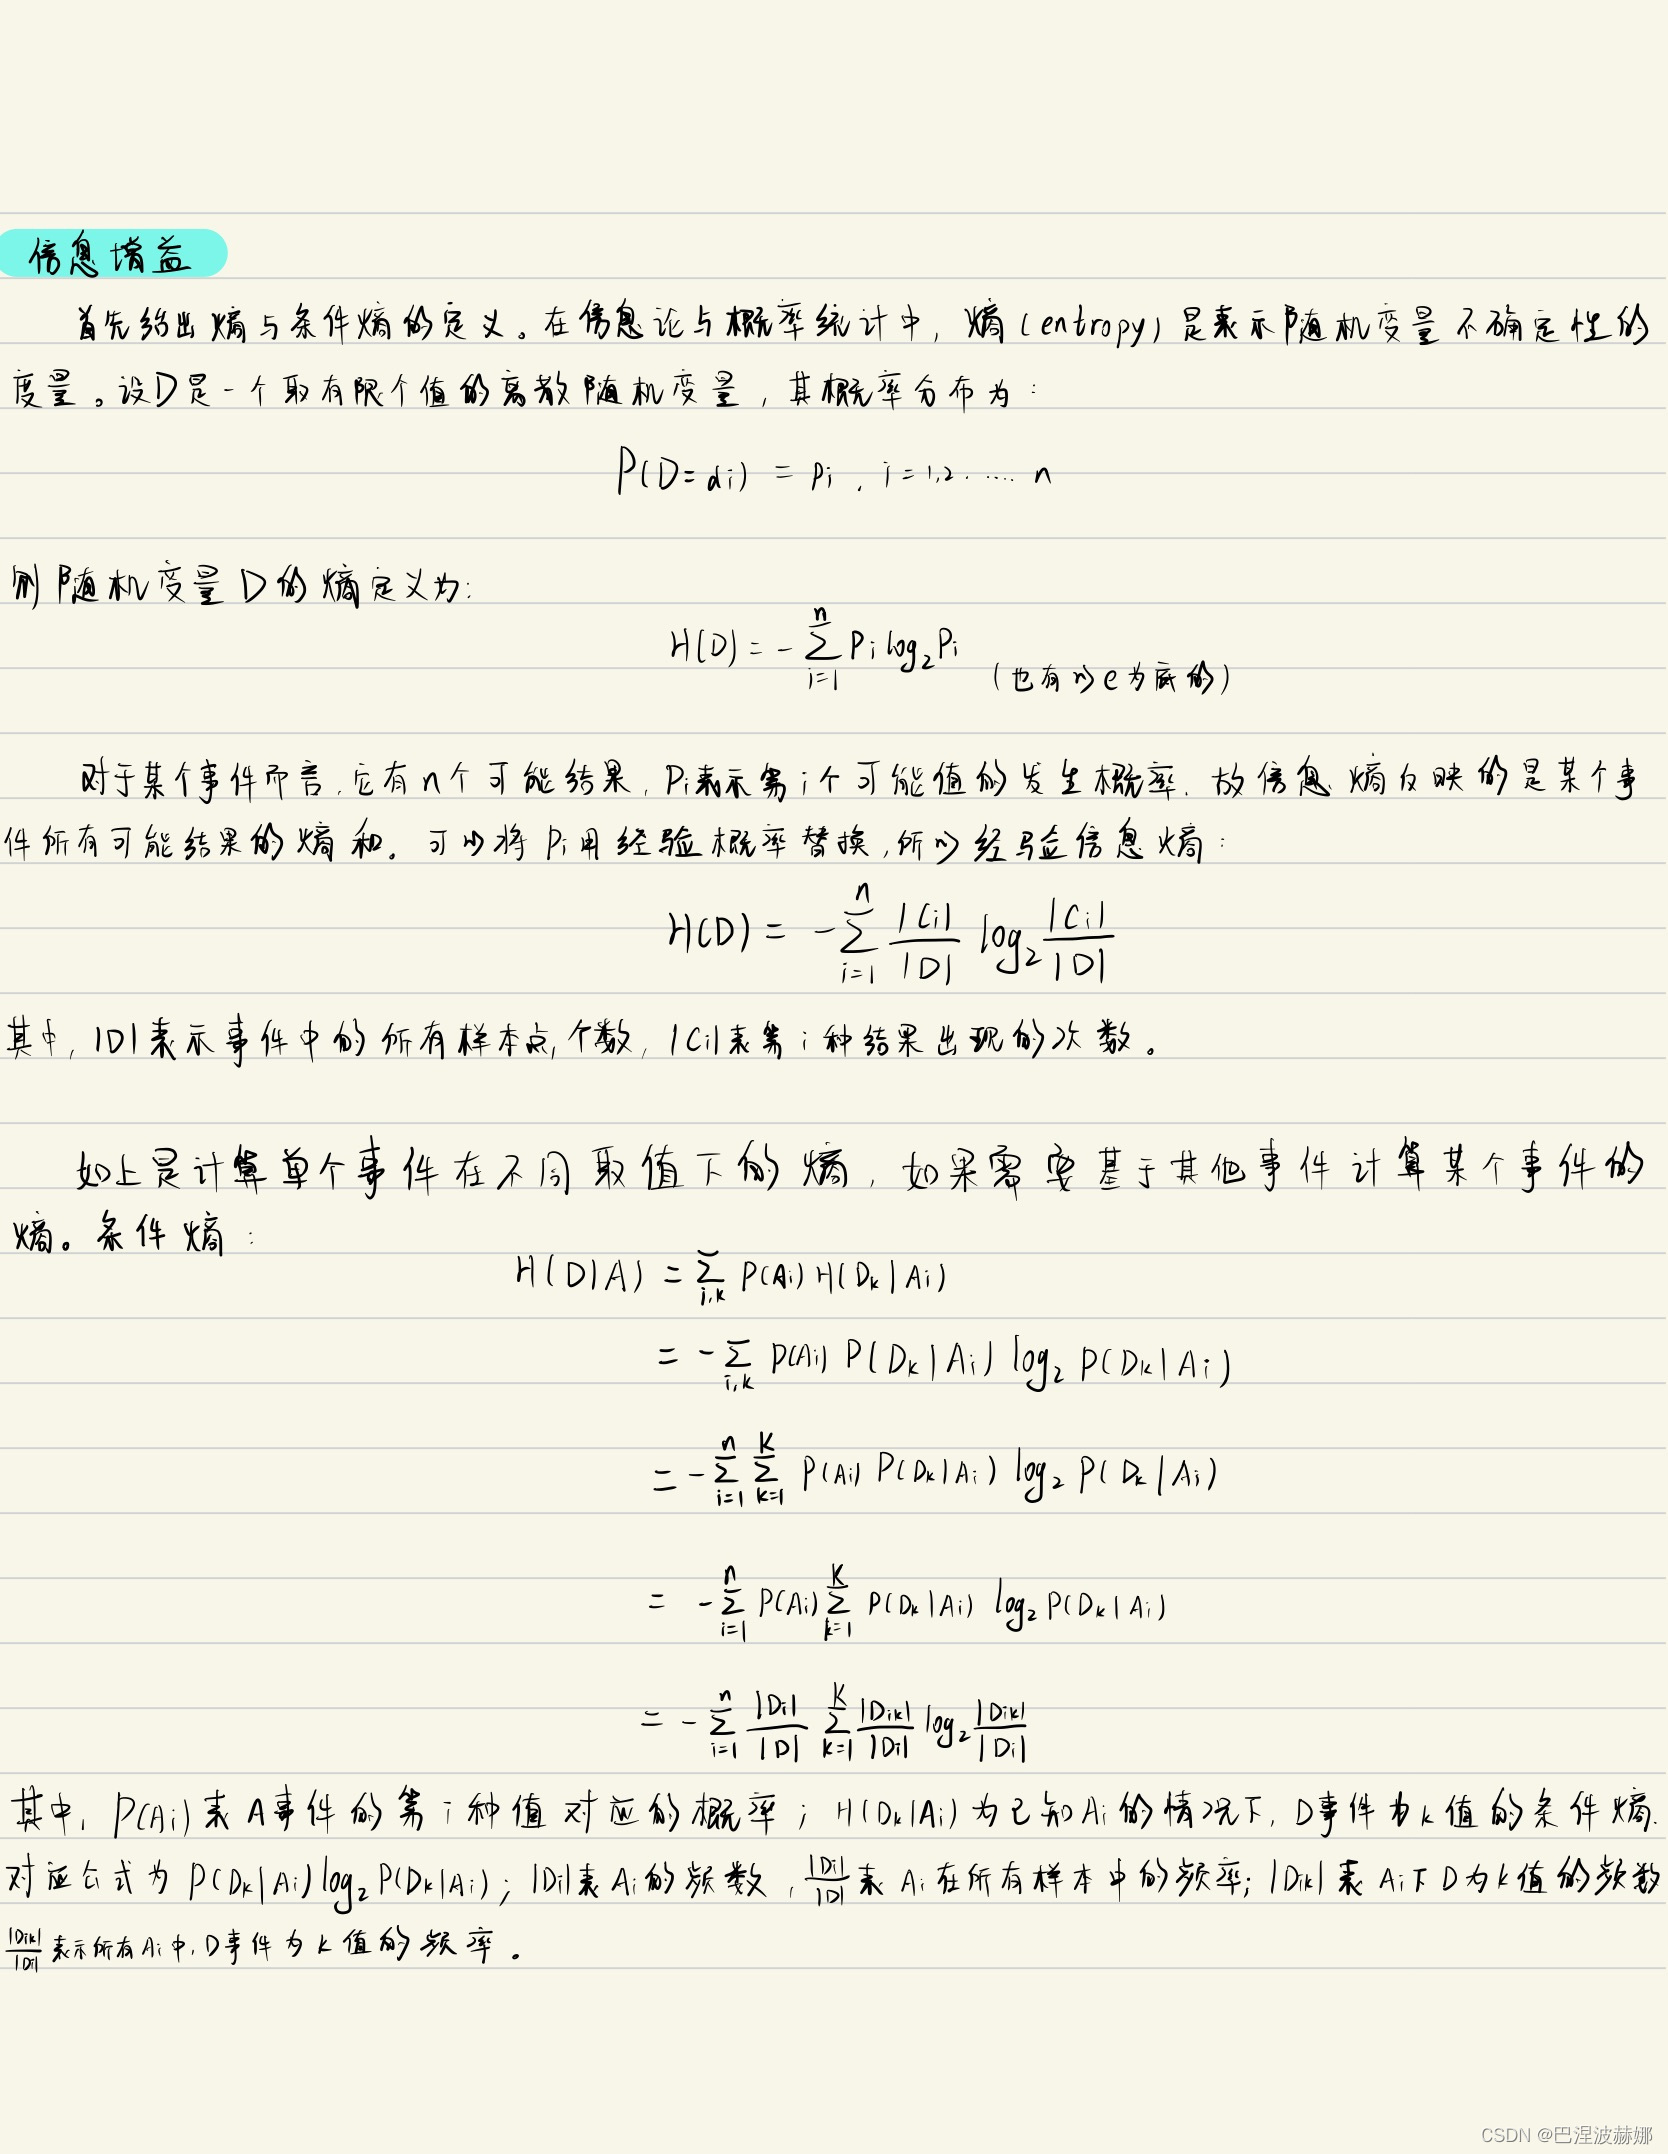 信息增益
首先给出熵与条件熵的定义。在信息论与概率统计中,熵(entropy)是表示随机变量不确定性的
度量。设D是一个取有限个值的离散随机变量,其概率分布为:
P(D=di) = Pi , i=1,2,.... n
则随机变量D的熵定义为:
H(D) = -∑_{i=1}^{n} Pi log₂Pi (也有以e为底的)
对于某个事件而言,它有n个可能结果,Pi表示第i个可能值的发生概率.故信息熵反映的是某个事
件所有可能结果的熵和。可以将Pi用经验概率替换,所以经验信息熵:
H(D) = -∑_{i=1}^{n} |Ci|/|D| log₂ |Ci|/|D|
其中,|D|表示事件中的所有样本点个数,|Ci|表第i种结果出现的次数。
如上是计算单个事件在不同取值下的熵,如果需要基于其他事件计算某个事件的
熵。条件熵:
H(D|A) = ∑_{i,k} P(Ai) H(Dk|Ai)
= -∑_{i,k} P(Ai) P(Dk|Ai) log₂ P(Dk|Ai)
= -∑_{i=1}^{n} ∑_{k=1}^{K} P(Ai) P(Dk|Ai) log₂ P(Dk|Ai)
= -∑_{i=1}^{n} P(Ai) ∑_{k=1}^{K} P(Dk|Ai) log₂ P(Dk|Ai)
= -∑_{i=1}^{n} |Di|/|D| ∑_{k=1}^{K} |Dik|/|Di| log₂ |Dik|/|Di|
其中,P(Ai)表A事件的第i种值对应的概率;H(Dk|Ai)为已知Ai的情况下,D事件为k值的条件熵.
对应公式为P(Dk|Ai)log₂P(Dk|Ai);|Di|表Ai的频数,|Di|/|D|表Ai在所有样本中的频率;|Dik|表Ai下D为k值的频数
|Dik|/|Di|表示所有Ai中,D事件为k值的频率。
CSDN @巴涅波赫娜